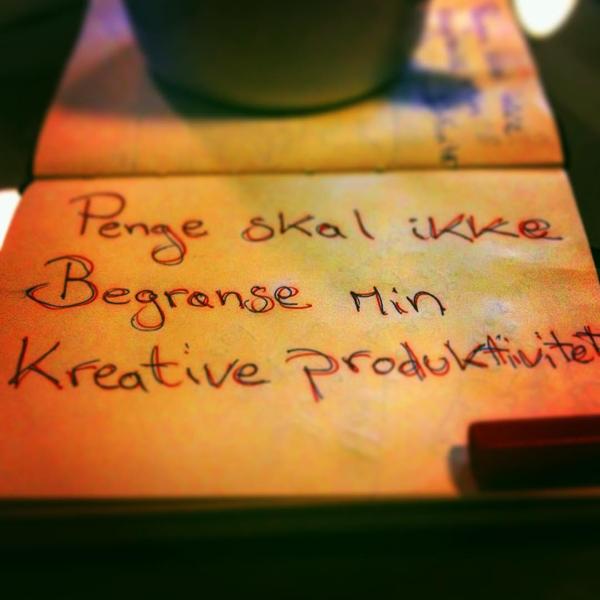 Penge skal ikke
Begranse Min
Kreative produktivitet